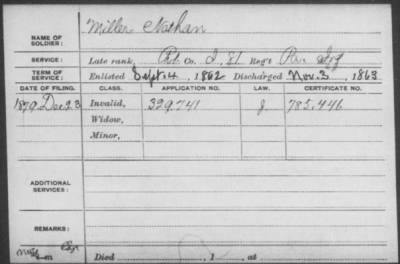 NAME OF SOLDIER: Miller Nathan
SERVICE: Late rank, Pvt. Co. I, 81 Reg't Pa Inf
TERM OF SERVICE: Enlisted Sept 14, 1862 Discharged Nov. 3, 1863
DATE OF FILING. CLASS. APPLICATION NO. LAW. CERTIFICATE NO.
1879 Dec 23 Invalid, 329741 J 785,446
Widow,
Minor,
ADDITIONAL SERVICES:
REMARKS:
Died , 1 , at